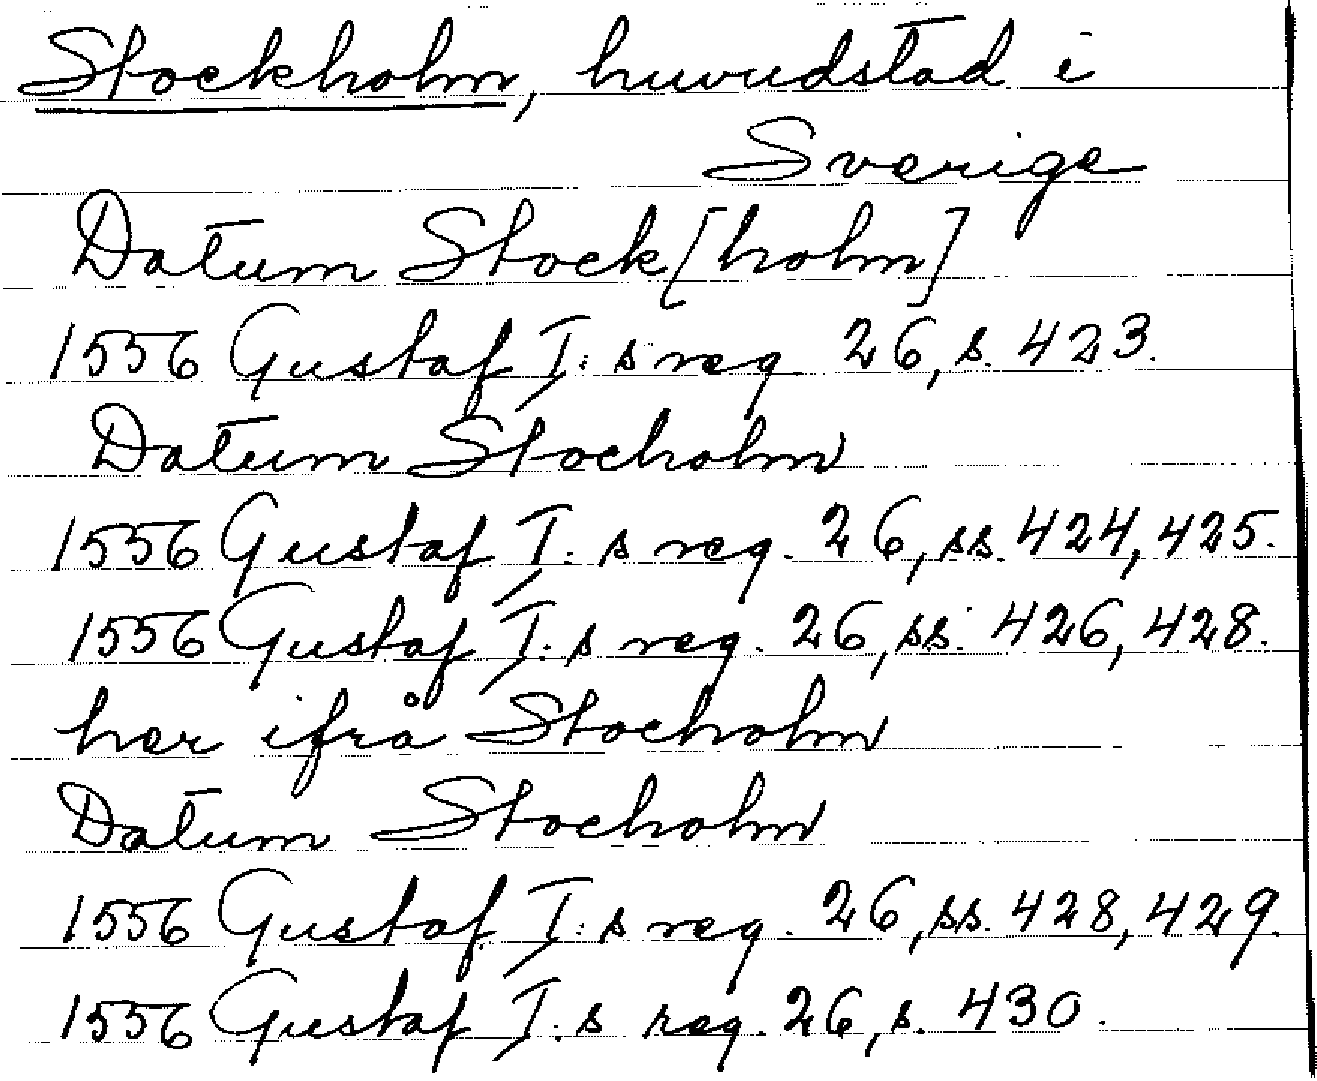 Stockholm, huvudstad i
Sverige
Datum Stock[holm]
1556 Gustaf I:s reg 26, s. 423.
Datum Stocholm
1556 Gustaf I:s reg. 26, ss. 424, 425.
1556 Gustaf I:s reg. 26, ss. 426, 428.
her ifrå Stocholm
Datum Stocholm
1556 Gustaf I:s reg. 26, ss. 428, 429.
1556 Gustaf I:s reg. 26, s. 430.